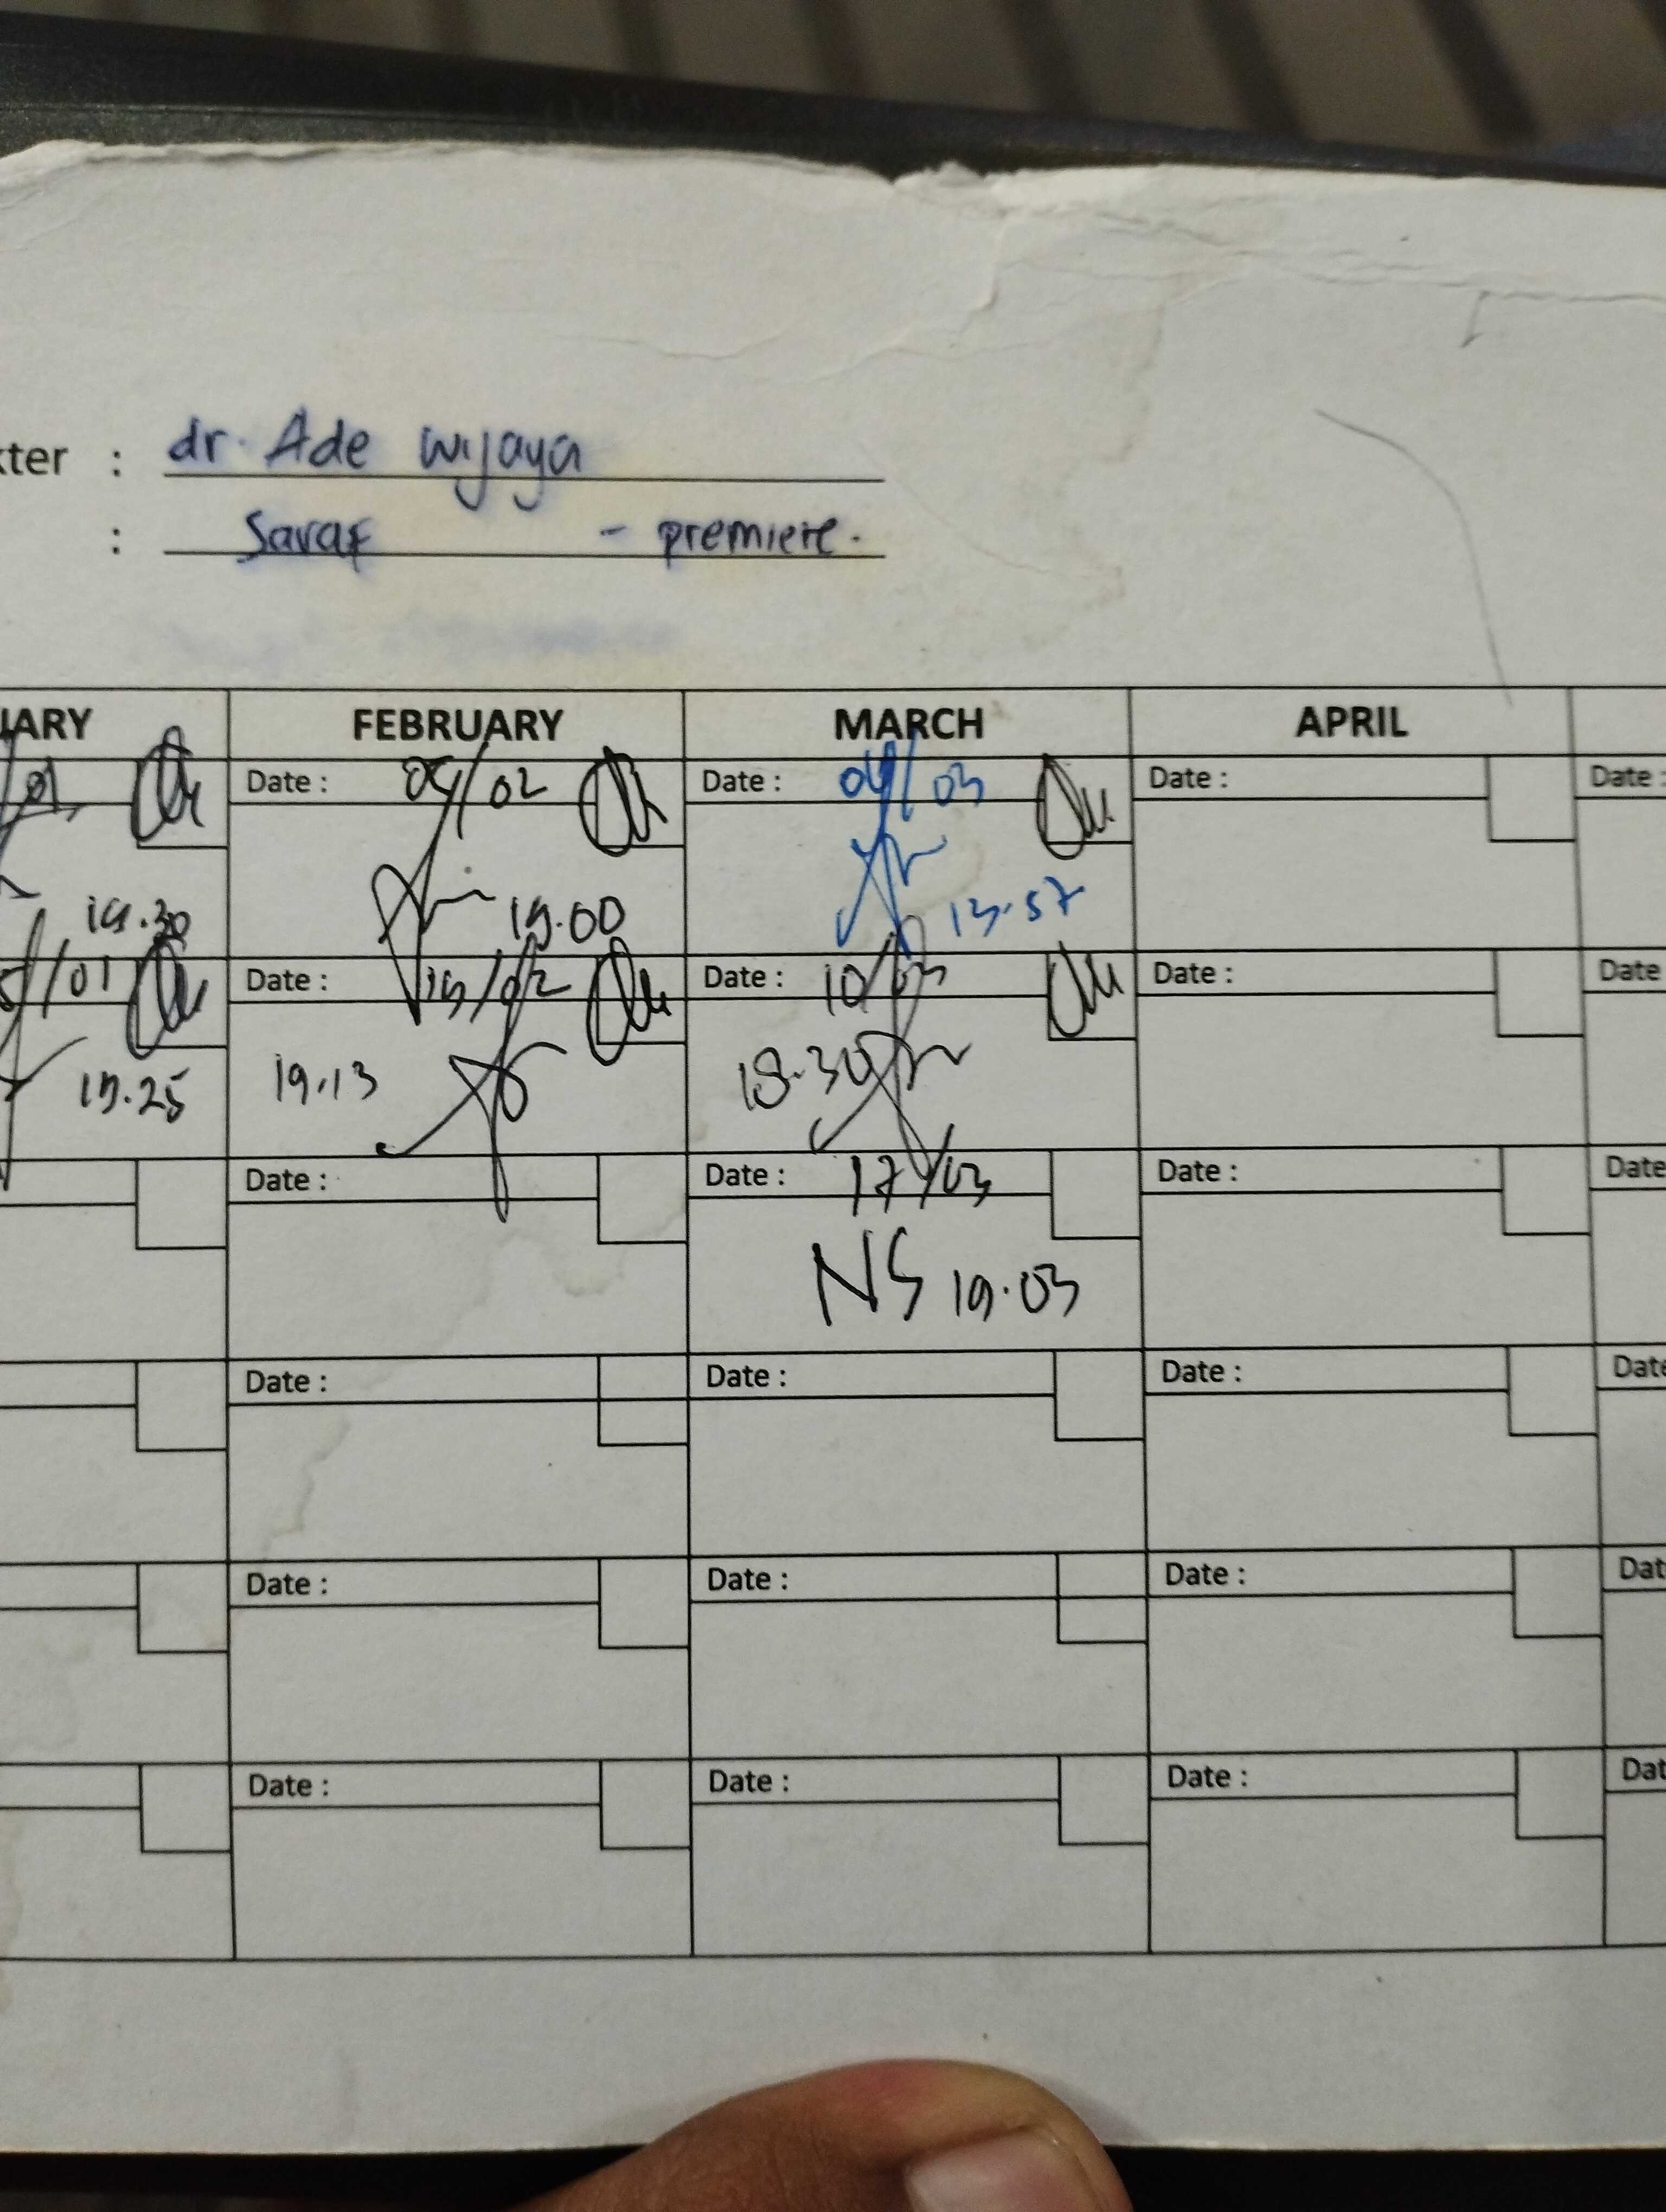 kter : dr. Ade Wijaya
: Saraf - premiere.
UARY FEBRUARY MARCH APRIL
/01 Date : 05/02 Date : 04/03 Date : Date :
19.30 19.00 13.57
/01 Date : 19/02 Date : 10/03 Date : Date
19.25 19.13 18.30
Date : Date : 17/03 Date : Date
NS 19.03
Date : Date : Date : Date
Date : Date : Date : Dat
Date : Date : Date : Dat